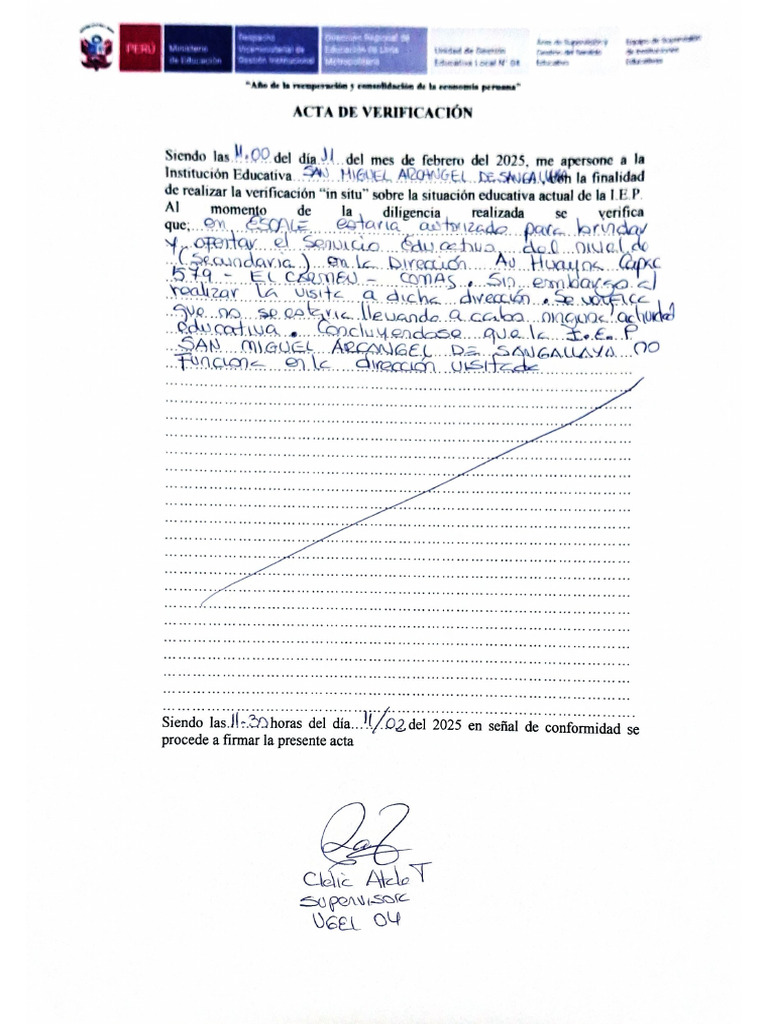 PERÚ
Ministerio
de Educación
Despacho
Viceministerial de
Gestión Institucional
Dirección Regional de
Educación de Lima
Metropolitana
Unidad de Gestión
Educativa Local N° 04
Área de Supervisión y
Gestión del Servicio
Educativo
Equipo de Supervisión
de Instituciones
Educativas
"Año de la recuperación y consolidación de la economía peruana"
ACTA DE VERIFICACIÓN
Siendo las 11.00 del día 11 del mes de febrero del 2025, me apersone a la
Institución Educativa SAN MIGUEL ARCANGEL DE SANGALLAYA con la finalidad
de realizar la verificación "in situ" sobre la situación educativa actual de la I.E.P.
Al momento de la diligencia realizada se verifica
que; en ESCALE estaría autorizado para brindar
y ofertar el servicio educativo del nivel de
(Secundaria) en la Dirección Av Huayna Capac
579 - EL CARMEN - COMAS. Sin embargo al
realizar la visita a dicha dirección. Se verifica
que no se estaría llevando a cabo ninguna actividad
educativa. Concluyendose que la I.E.P
SAN MIGUEL ARCANGEL DE SANGALLAYA no
Funciona en la dirección visitada
Siendo las 11.30 horas del día 11/02 del 2025 en señal de conformidad se
procede a firmar la presente acta
SUPERVISORA
UGEL 04